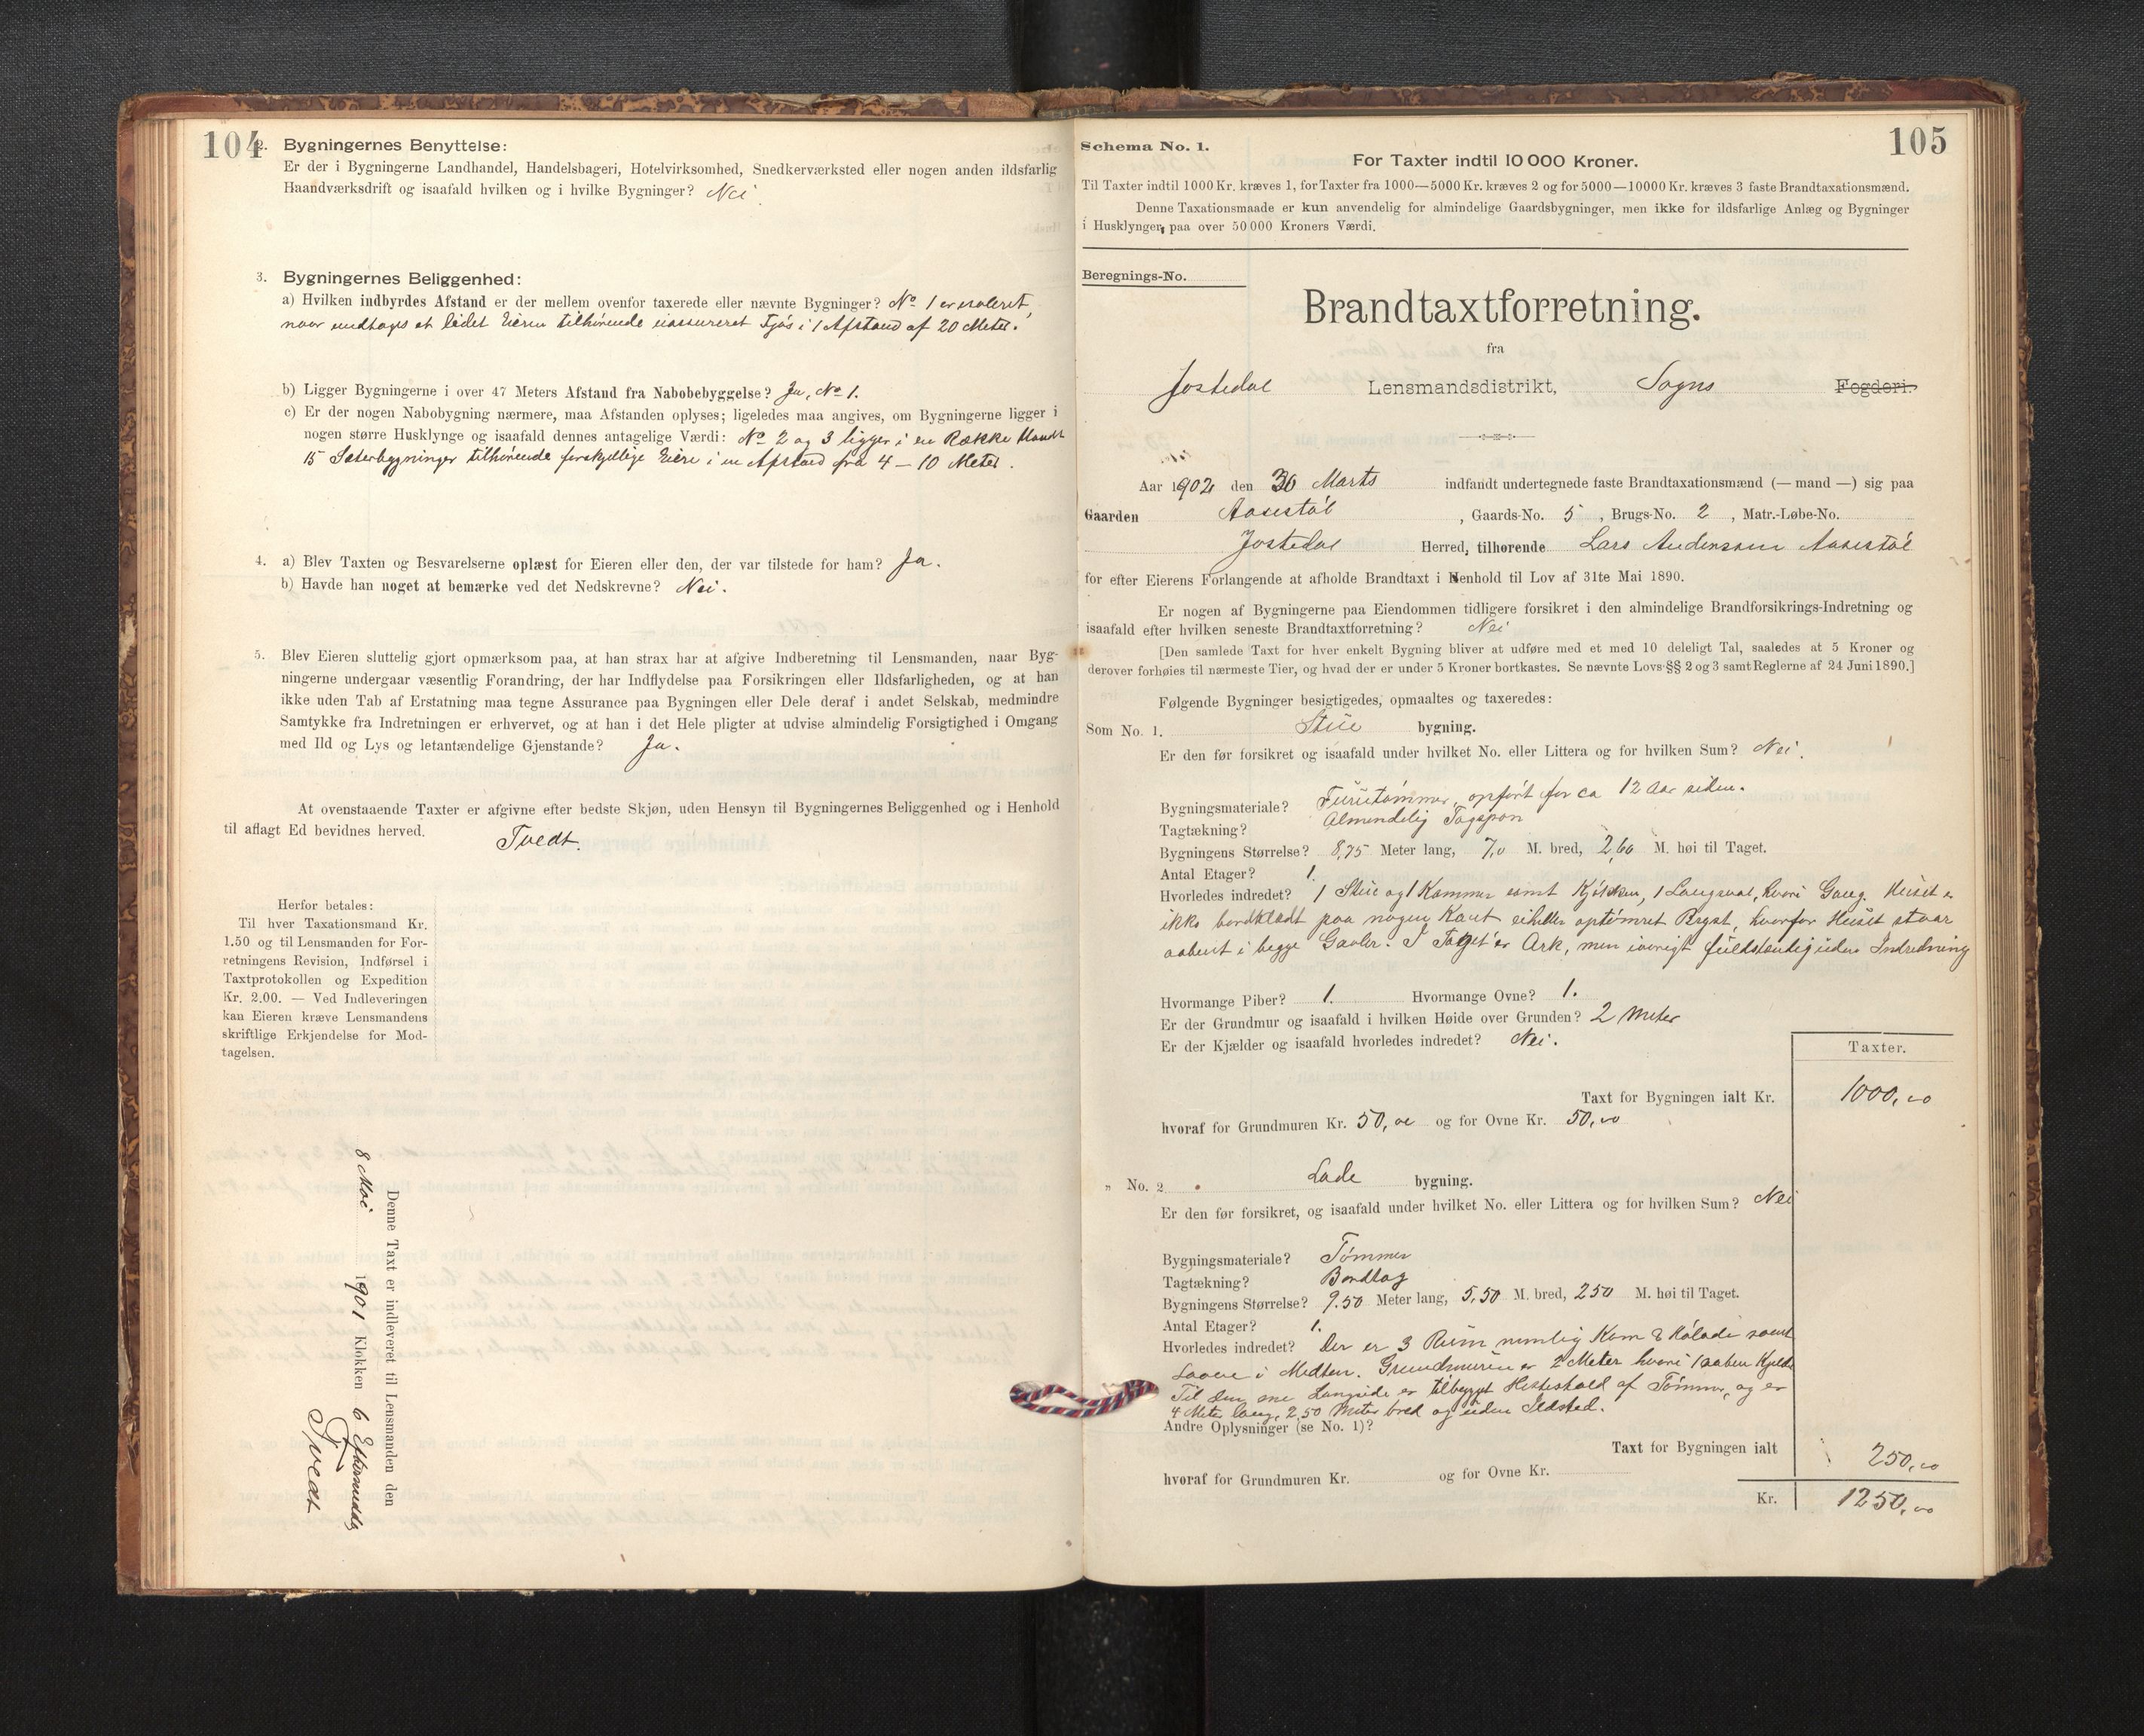 104
2. Bygningernes Benyttelse:
Er der i Bygningerne Landhandel, Handelsbageri, Hotelvirksomhed, Snedkerværksted eller nogen anden ildsfarlig
Haandværksdrift og isaafald hvilken og i hvilke Bygninger? Nei.
3. Bygningernes Beliggenhed:
a) Hvilken indbyrdes Afstand er der mellem ovenfor taxerede eller nævnte Bygninger? No 1 er isoleret,
naar undtages et lidet Eieren tilhørende uassureret Fjøs i 1 Afstand af 20 Meter.
b) Ligger Bygningerne i over 47 Meters Afstand fra Nabobebyggelse? Ja, No 1.
c) Er der nogen Nabobygning nærmere, maa Afstanden oplyses; ligeledes maa angives, om Bygningerne ligger i
nogen større Husklynge og isaafald dennes antagelige Værdi: No 2 og 3 ligger i en Række blandt
15 Sæterbygninger tilhørende forskjellige Eiere i en Afstand fra 4 – 10 Meter.
4. a) Blev Taxten og Besvarelserne oplæst for Eieren eller den, der var tilstede for ham? Ja.
b) Havde han noget at bemærke ved det Nedskrevne? Nei.
5. Blev Eieren sluttelig gjort opmærksom paa, at han strax har at afgive Indberetning til Lensmanden, naar Byg-
ningerne undergaar væsentlig Forandring, der har Indflydelse paa Forsikringen eller Ildsfarligheden, og at han
ikke uden Tab af Erstatning maa tegne Assurance paa Bygningen eller Dele deraf i andet Selskab, medmindre
Samtykke fra Indretningen er erhvervet, og at han i det Hele pligter at udvise almindelig Forsigtighed i Omgang
med Ild og Lys og letantændelige Gjenstande? Ja.
At ovenstaaende Taxter er afgivne efter bedste Skjøn, uden Hensyn til Bygningernes Beliggenhed og i Henhold
til aflagt Ed bevidnes herved. Tvedt.
Herfor betales:
Til hver Taxationsmand Kr.
1.50 og til Lensmanden for For-
retningens Revision, Indførsel i
Taxtprotokollen og Expedition
Kr. 2.00. — Ved Indleveringen
kan Eieren kræve Lensmandens
skriftlige Erkjendelse for Mod-
tagelsen.
Denne Taxt er indleveret til Lensmanden den
8 Mai 1901 Klokken 6 Eftermiddag
Tvedt
105
Schema No. 1.
For Taxter indtil 10 000 Kroner.
Til Taxter indtil 1000 Kr. kræves 1, for Taxter fra 1000—5000 Kr. kræves 2 og for 5000—10000 Kr. kræves 3 faste Brandtaxationsmænd.
Denne Taxationsmaade er kun anvendelig for almindelige Gaardsbygninger, men ikke for ildsfarlige Anlæg og Bygninger
i Husklynger, paa over 50 000 Kroners Værdi.
Beregnings-No.
Brandtaxtforretning.
fra
Jostedal Lensmandsdistrikt, Sogns Fogderi.
Aar 1902 den 30 Marts indfandt undertegnede faste Brandtaxationsmænd (— mand —) sig paa
Gaarden Aasestøl, Gaards-No. 5, Brugs-No. 2, Matr.-Løbe-No.
Jostedal Herred, tilhørende Lars Andersen Aasestøl
for efter Eierens Forlangende at afholde Brandtaxt i Henhold til Lov af 31te Mai 1890.
Er nogen af Bygningerne paa Eiendommen tidligere forsikret i den almindelige Brandforsikrings-Indretning og
isaafald efter hvilken seneste Brandtaxtforretning? Nei
[Den samlede Taxt for hver enkelt Bygning bliver at udføre med et med 10 deleligt Tal, saaledes at 5 Kroner og
derover forhøies til nærmeste Tier, og hvad der er under 5 Kroner bortkastes. Se nævnte Lovs §§ 2 og 3 samt Reglerne af 24 Juni 1890.]
Følgende Bygninger besigtigedes, opmaaltes og taxeredes:
Som No. 1. Stue bygning.
Er den før forsikret og isaafald under hvilket No. eller Littera og for hvilken Sum? Nei.
Bygningsmateriale? Furutømmer, opført for ca 12 Aar siden.
Tagtækning? Almindelig Tagspon
Bygningens Størrelse? 8,75 Meter lang, 7,0 M. bred, 2,60 M. høi til Taget.
Antal Etager? 1.
Hvorledes indredet? 1 Stue og 1 Kammer samt Kjøkken, 1 Langsval, hvori Gang. Huset er
ikke bordklædt paa nogen Kant eiheller optømret Bryst, hvorfor Huset staar
aabent i begge Gavler. I Taget er Ark, men iøvrigt fuldstændig uden Indredning
Hvormange Piber? 1. Hvormange Ovne? 1.
Er der Grundmur og isaafald i hvilken Høide over Grunden? 2 Meter
Er der Kjælder og isaafald hvorledes indredet? Nei.
Taxter.
Taxt for Bygningen ialt Kr. 1000,00
hvoraf for Grundmuren Kr. 50,00 og for Ovne Kr. 50,00
" No. 2 Lade bygning.
Er den før forsikret, og isaafald under hvilket No. eller Littera og for hvilken Sum? Nei
Bygningsmateriale? Tømmer
Tagtækning? Bordtag
Bygningens Størrelse? 9.50 Meter lang, 5,50 M. bred, 250 M. høi til Taget.
Antal Etager? 1.
Hvorledes indredet? Der er 3 Rum nemlig Korn & Hølade samt
Laave i Midten. Grundmuren er 2 Meter hvori 1 aaben Kjelder
Til den ene Langside er tilbygget Hestestald af Tømmer, og er
4 Meter lang, 2,50 Meter bred og uden Ildsted.
Andre Oplysninger (se No. 1)?
Taxt for Bygningen ialt 250,00
hvoraf for Grundmuren Kr. og for Ovne Kr.
Kr. 1250,00